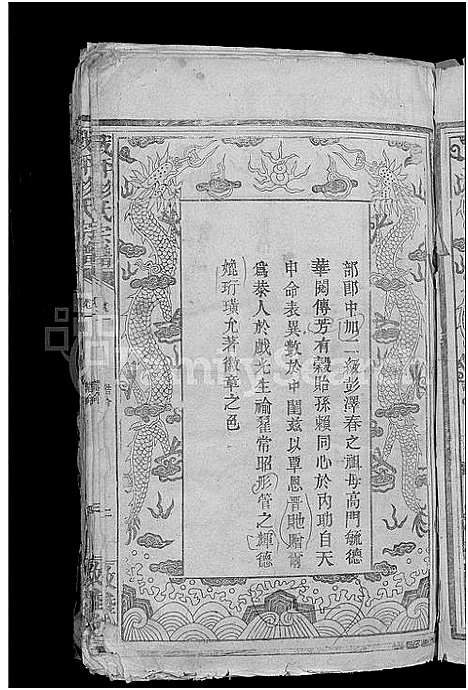 部郎中加二級彭澤春之祖母高門毓德
華閥傳芳有穀貽孫賴同心於內助自天
申命表異數於中閨茲以覃恩晉貤贈爾
為恭人於戲光生禴翟常昭彤管之輝德
媲珩璜允著徽章之色
彭氏宗譜
誥命
二